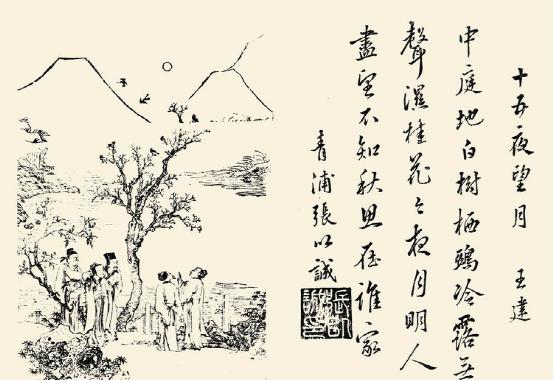 十五夜望月 王建
中庭地白樹栖鵶冷露無
聲濕桂花今夜月明人
盡望不知秋思在誰家
青浦張以誠